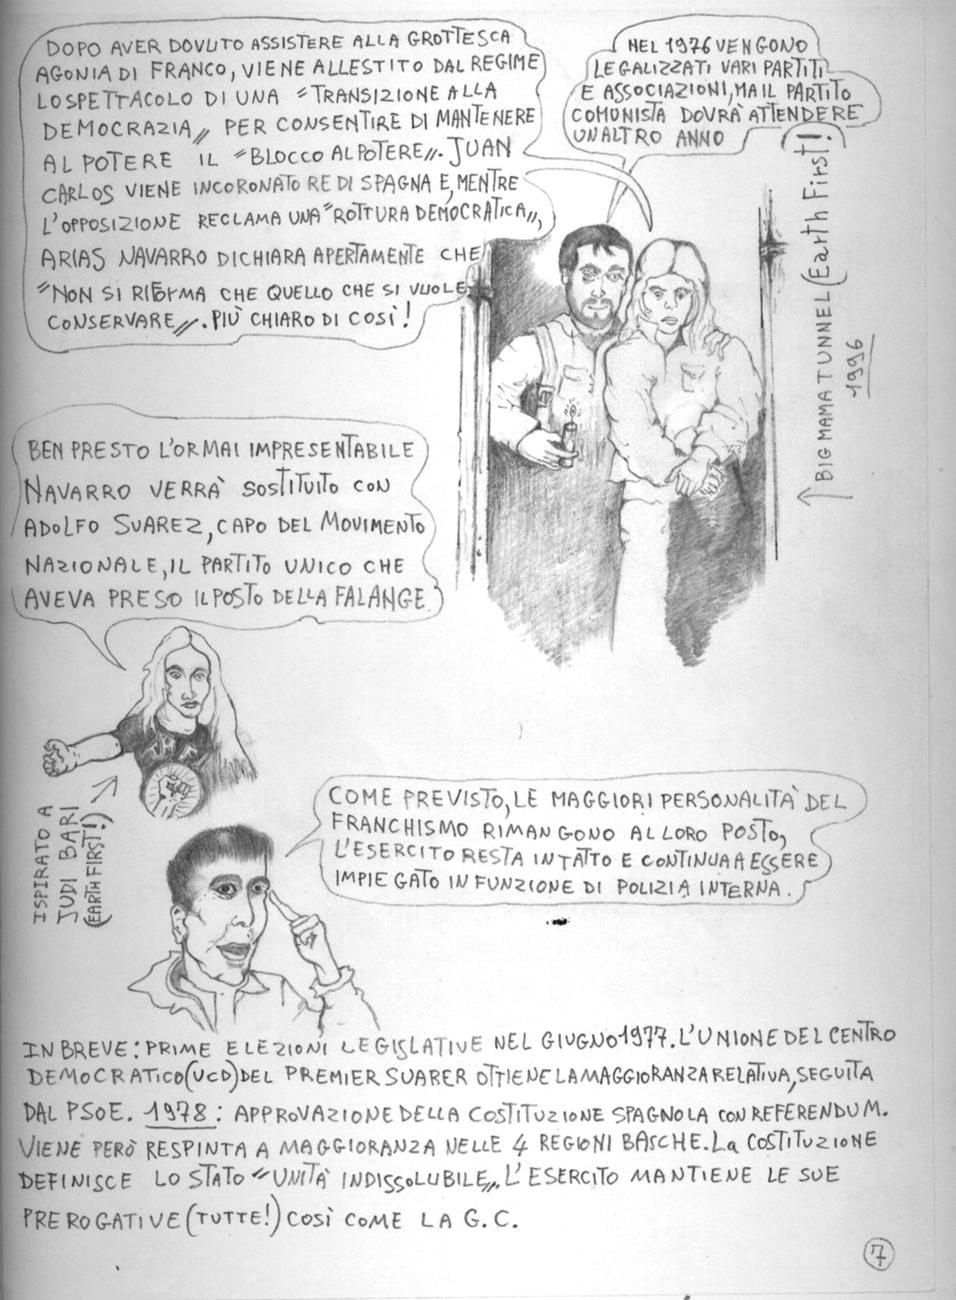 DOPO AVER DOVUTO ASSISTERE ALLA GROTTESCA
AGONIA DI FRANCO, VIENE ALLESTITO DAL REGIME
LO SPETTACOLO DI UNA "TRANSIZIONE ALLA
DEMOCRAZIA" PER CONSENTIRE DI MANTENERE
AL POTERE IL "BLOCCO AL POTERE". JUAN
CARLOS VIENE INCORONATO RE DI SPAGNA E, MENTRE
L'OPPOSIZIONE RECLAMA UNA "ROTTURA DEMOCRATICA",
ARIAS NAVARRO DICHIARA APERTAMENTE CHE
"NON SI RIFORMA CHE QUELLO CHE SI VUOLE
CONSERVARE". PIÙ CHIARO DI COSÌ!
NEL 1976 VENGONO
LEGALIZZATI VARI PARTITI
E ASSOCIAZIONI, MA IL PARTITO
COMUNISTA DOVRÀ ATTENDERE
UN ALTRO ANNO
BIG MAMA TUNNEL (Earth First!)
1996
BEN PRESTO L'ORMAI IMPRESENTABILE
NAVARRO VERRÀ SOSTITUITO CON
ADOLFO SUAREZ, CAPO DEL MOVIMENTO
NAZIONALE, IL PARTITO UNICO CHE
AVEVA PRESO IL POSTO DELLA FALANGE
THE
ISPIRATO A
JUDI BARI
(EARTH FIRST!)
COME PREVISTO, LE MAGGIORI PERSONALITÀ DEL
FRANCHISMO RIMANGONO AL LORO POSTO,
L'ESERCITO RESTA INTATTO E CONTINUA A ESSERE
IMPIEGATO IN FUNZIONE DI POLIZIA INTERNA.
IN BREVE: PRIME ELEZIONI LEGISLATIVE NEL GIUGNO 1977. L'UNIONE DEL CENTRO
DEMOCRATICO (UCD) DEL PREMIER SUARER OTTIENE LA MAGGIORANZA RELATIVA, SEGUITA
DAL PSOE. 1978: APPROVAZIONE DELLA COSTITUZIONE SPAGNOLA CON REFERENDUM.
VIENE PERÒ RESPINTA A MAGGIORANZA NELLE 4 REGIONI BASCHE. La COSTITUZIONE
DEFINISCE LO STATO "UNITÀ INDISSOLUBILE". L'ESERCITO MANTIENE LE SUE
PREROGATIVE (TUTTE!) COSÌ COME LA G.C.
7